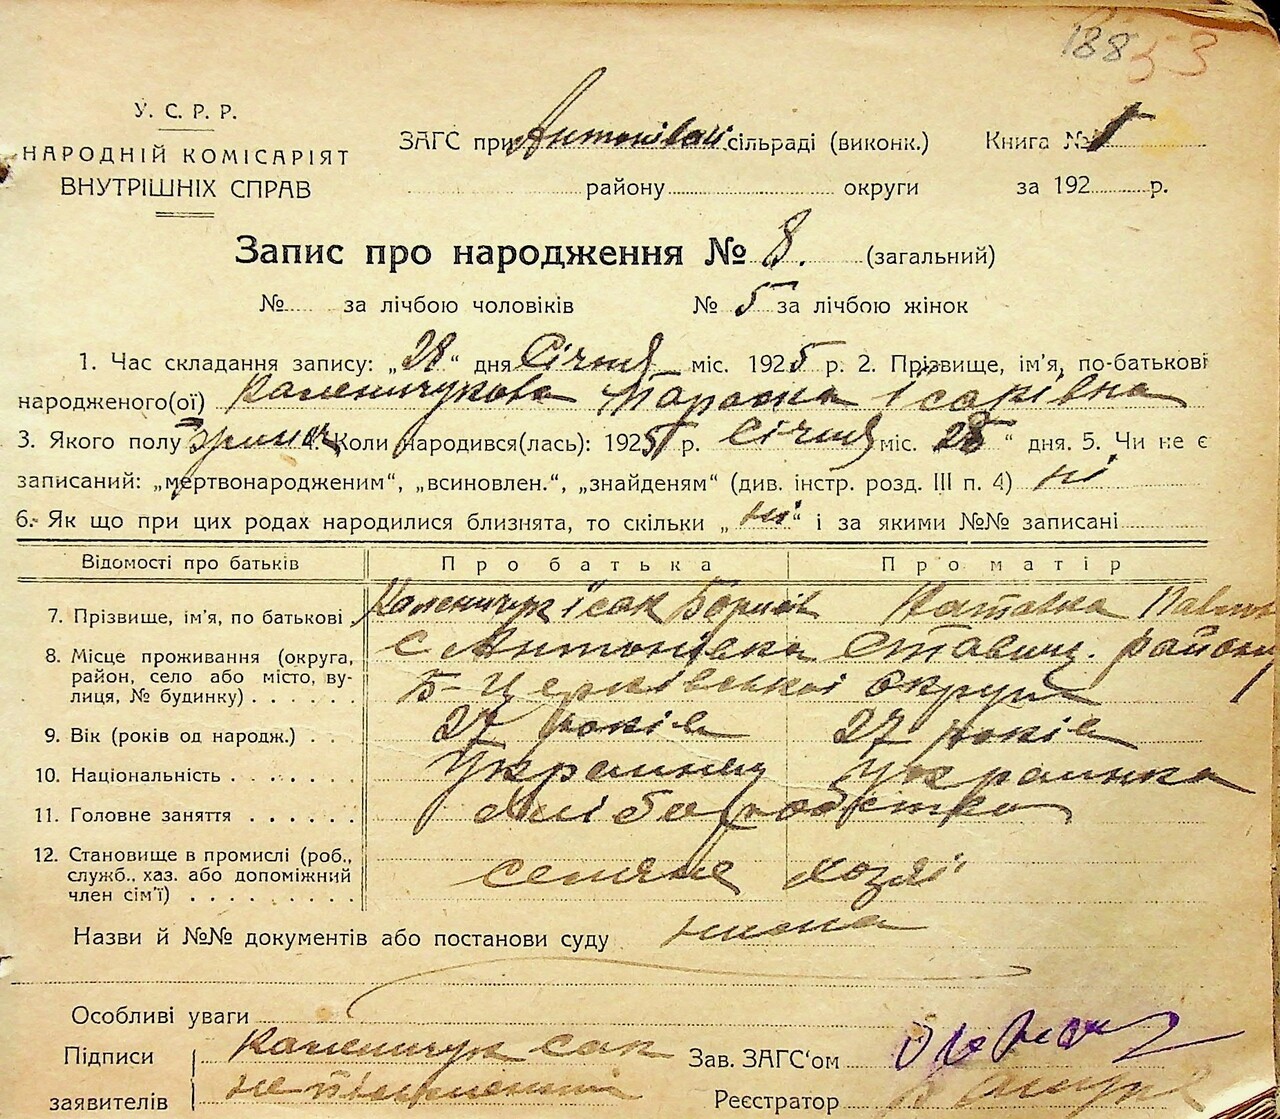 188 53
У. С. Р. Р.
НАРОДНІЙ КОМІСАРІЯТ
ВНУТРІШНІХ СПРАВ
ЗАГС при сільраді (виконк.) Книга №
району округи за 192 р.
Запис про народження № 8. (загальний)
№ за лічбою чоловіків № 5 за лічбою жінок
1. Час складання запису: „28“ дня Січня міс. 1925 р. 2. Прізвище, ім'я, по-батькові
народженого(ої) Каленичукова Параска Ісаківна
3. Якого полу 4. Коли народився(лась): 1925 р. Січня міс. 28“ дня. 5. Чи не є
записаний: „мертвонародженим“, „всиновлен.“, „знайденям“ (див. інстр. розд. III п. 4) ні
6. Як що при цих родах народилися близнята, то скільки „ні“ і за якими №№ записані
Відомості про батьків Про батька Про матір
7. Прізвище, ім'я, по батькові Каленичук Ісак
8. Місце проживання (округа, район, село або місто, вулиця, № будинку) с Антонівка Ставищ. району
Б-Церківської округи
9. Вік (років од народж.) 27 років 27 років
10. Національність Украинец Украинка
11. Головне заняття
12. Становище в промислі (роб., служб., хаз. або допоміжний член сім'ї) селяне
Назви й №№ документів або постанови суду нима
Особливі уваги
Підписи Каленичук Зав. ЗАГС'ом
заявителів Реєстратор